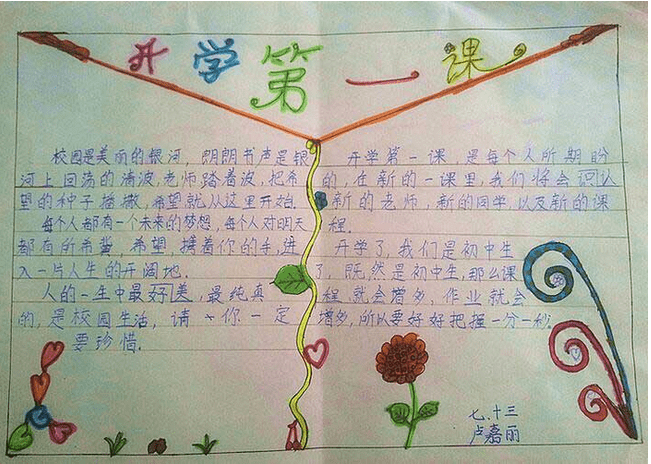 开学第一课
校园是美丽的银河，朗朗书声是银
河上回荡的清波，老师踏着波，把希
望的种子播撒，希望就从这里开始。
每个人都有一个未来的梦想，每个人对明天
都有所希冀，希望，携着你的手，进
入一片人生的开阔地。
人的一生中最好美，最纯真
的，是校园生活，请你一定
要珍惜。
开学第一课，是每个人所期盼
的，在新的一课里，我们将会识认
新的老师，新的同学，以及新的课
程。
开学了，我们是初中生
了，既然是初中生，那么课
程就会增多，作业就会
增多，所以要好好把握一分一秒。
七.十三
卢嘉丽